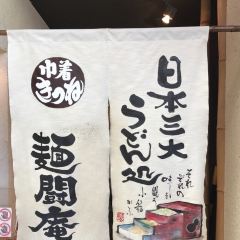 日本三大
うどん処
それ
ぞれの
巾着
きつね
麺闘庵